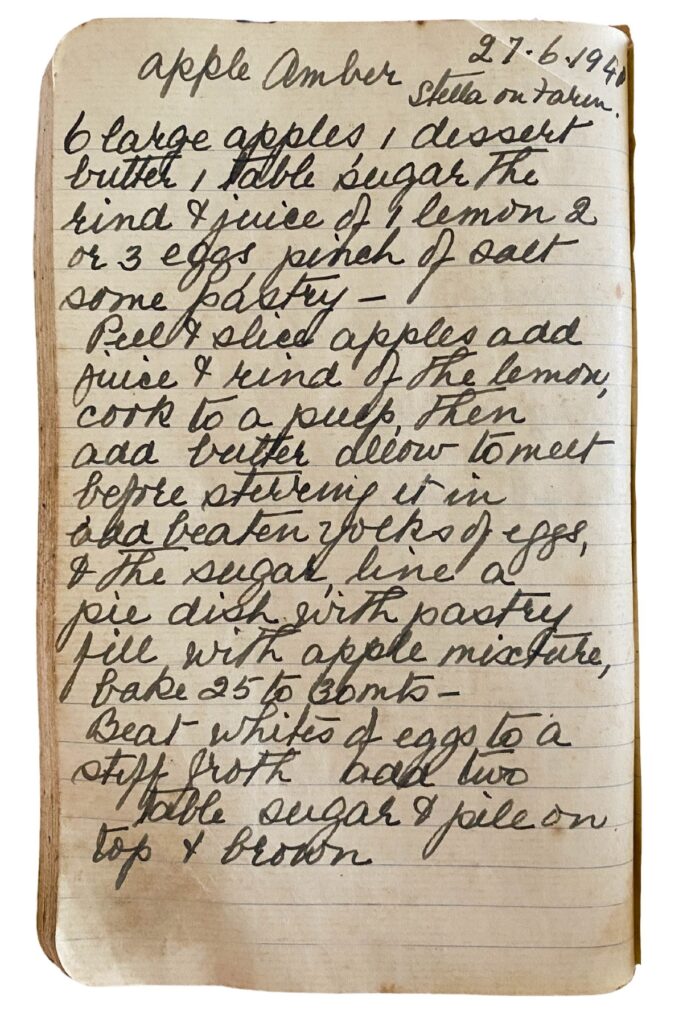 apple Amber
27.6.1941
Stella on Farm.
6 large apples 1 dessert
butter 1 table sugar The
rind & juice of 1 lemon 2
or 3 eggs pinch of salt
some pastry –
Peel & slice apples add
juice & rind of the lemon,
cook to a pulp, then
add butter allow to melt
before stirring it in
add beaten yolks of eggs,
& the sugar, line a
pie dish with pastry
fill with apple mixture,
bake 25 to 30 mts –
Beat whites of eggs to a
stiff froth add two
table sugar & pile on
top & brown